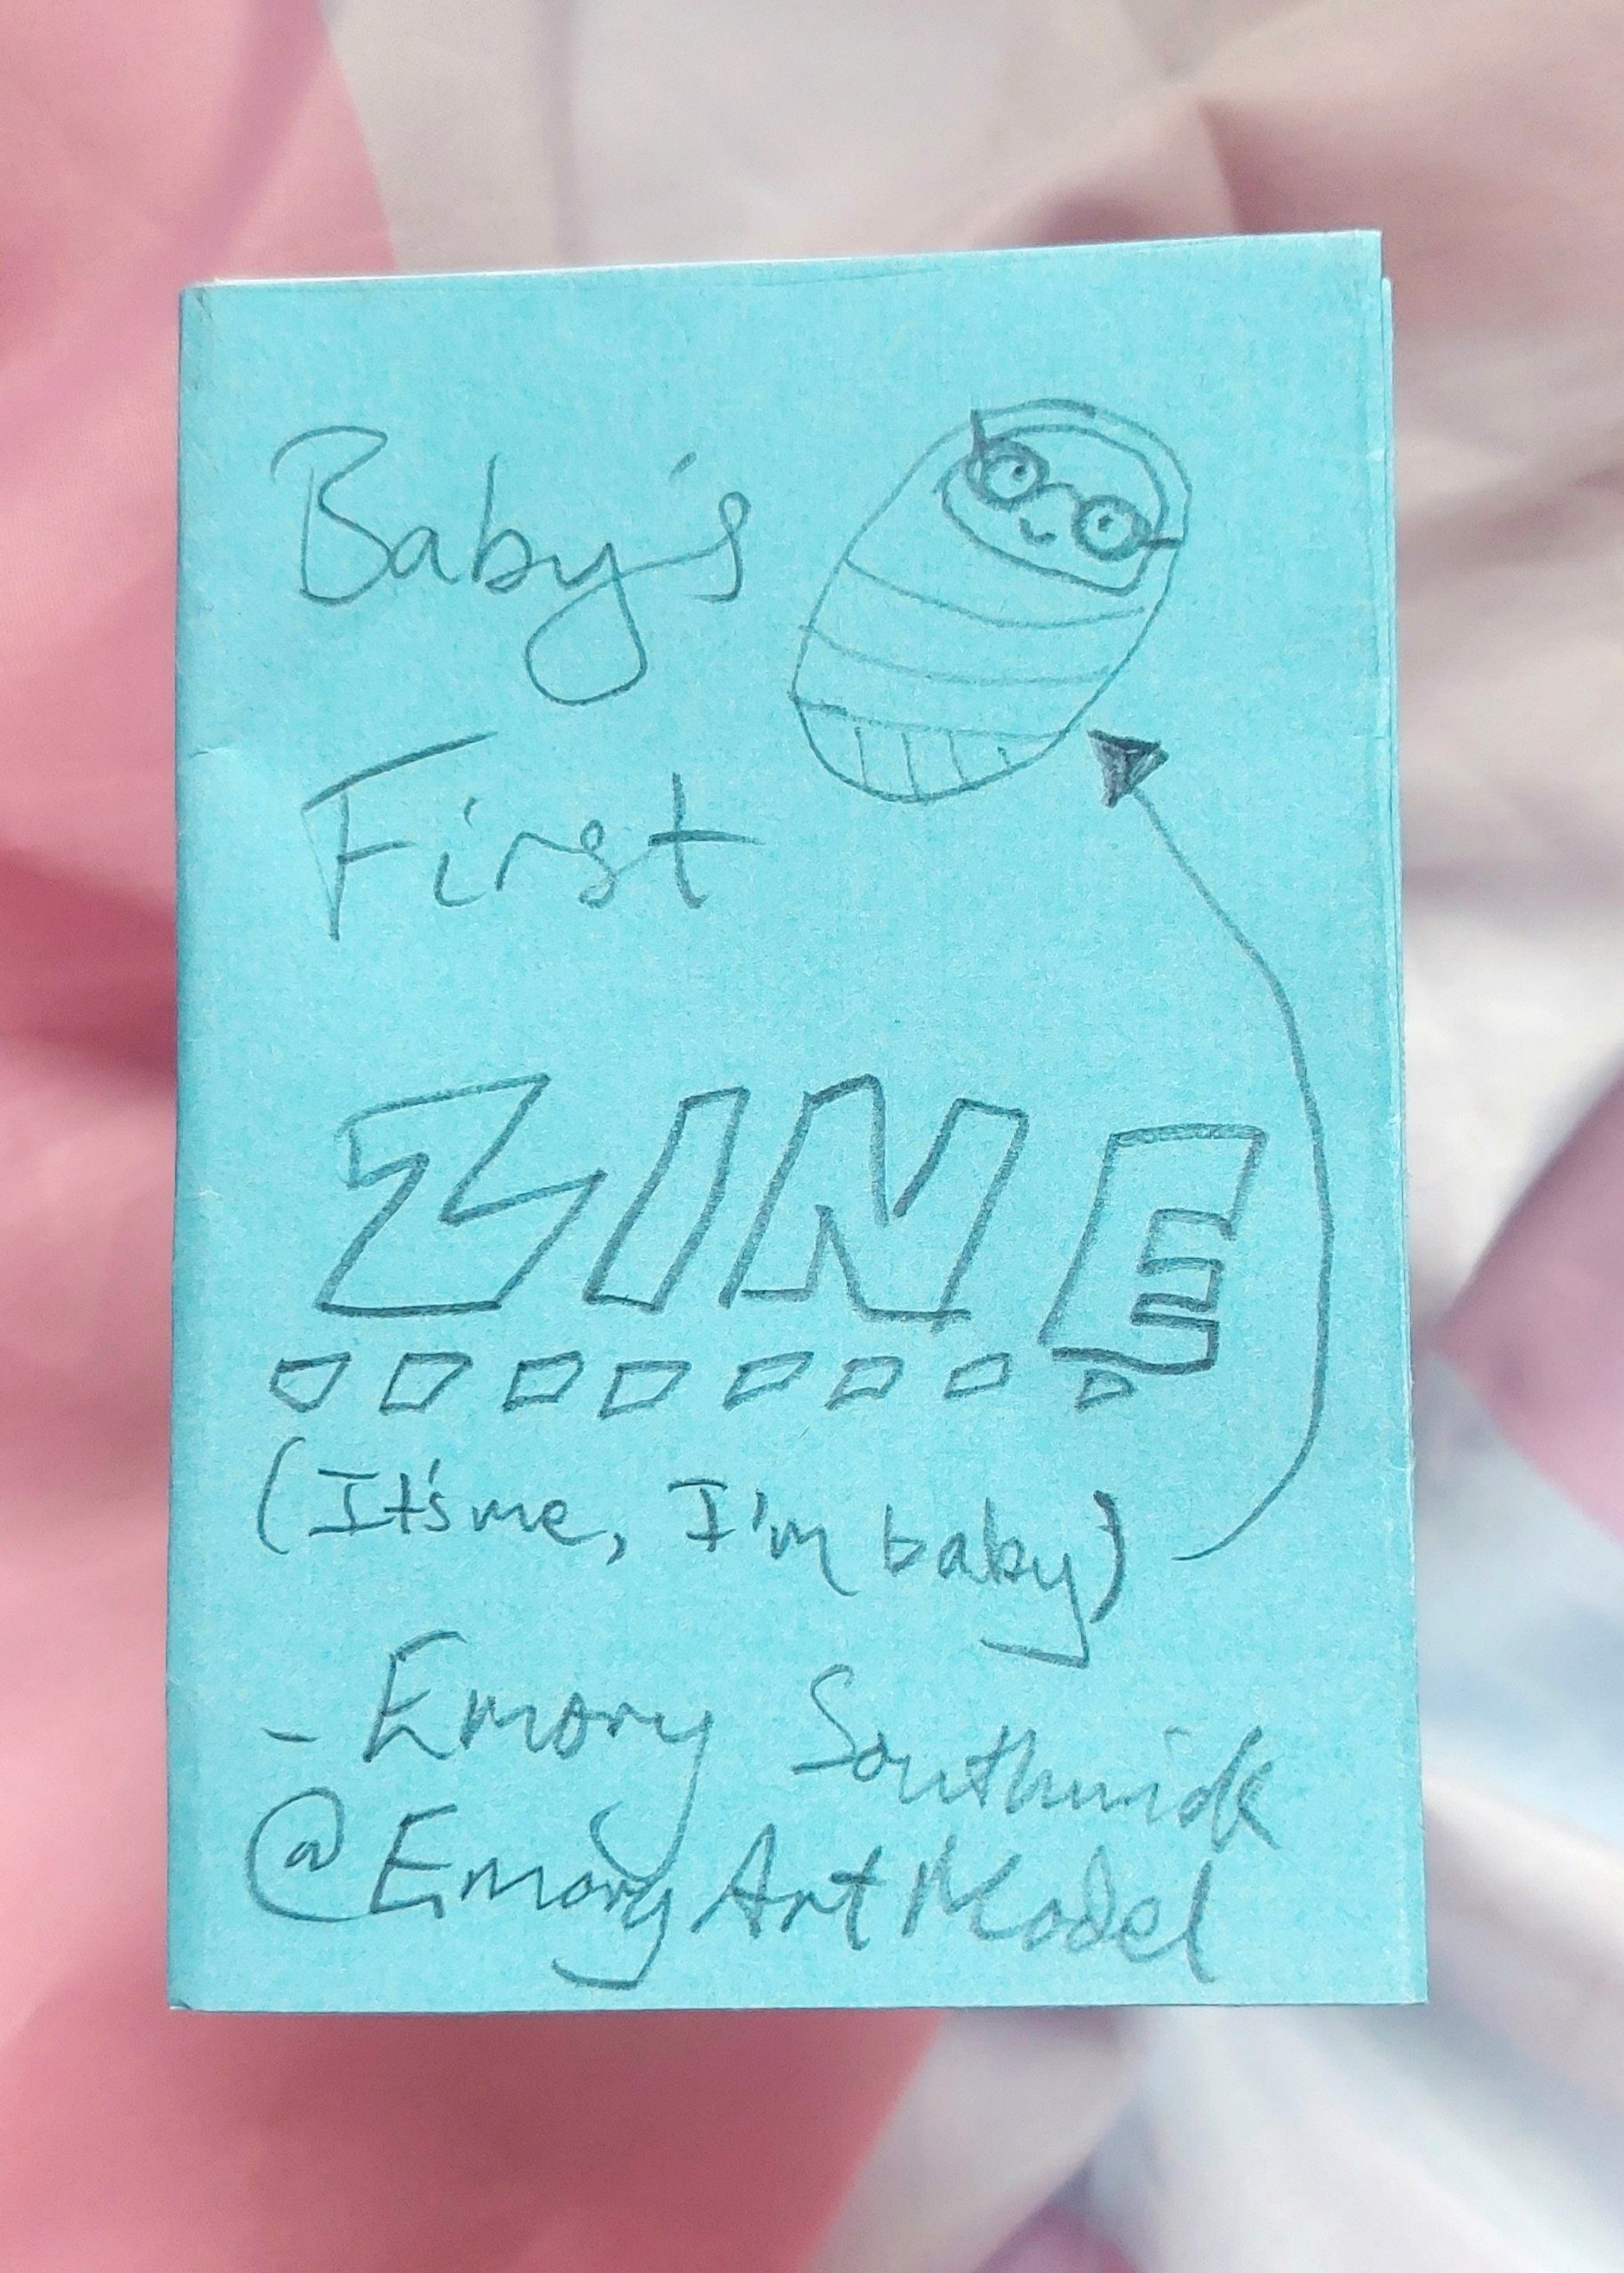 Baby's
First
ZINE
(It's me, I'm baby)
- Emory Southwick
@EmoryArtModel